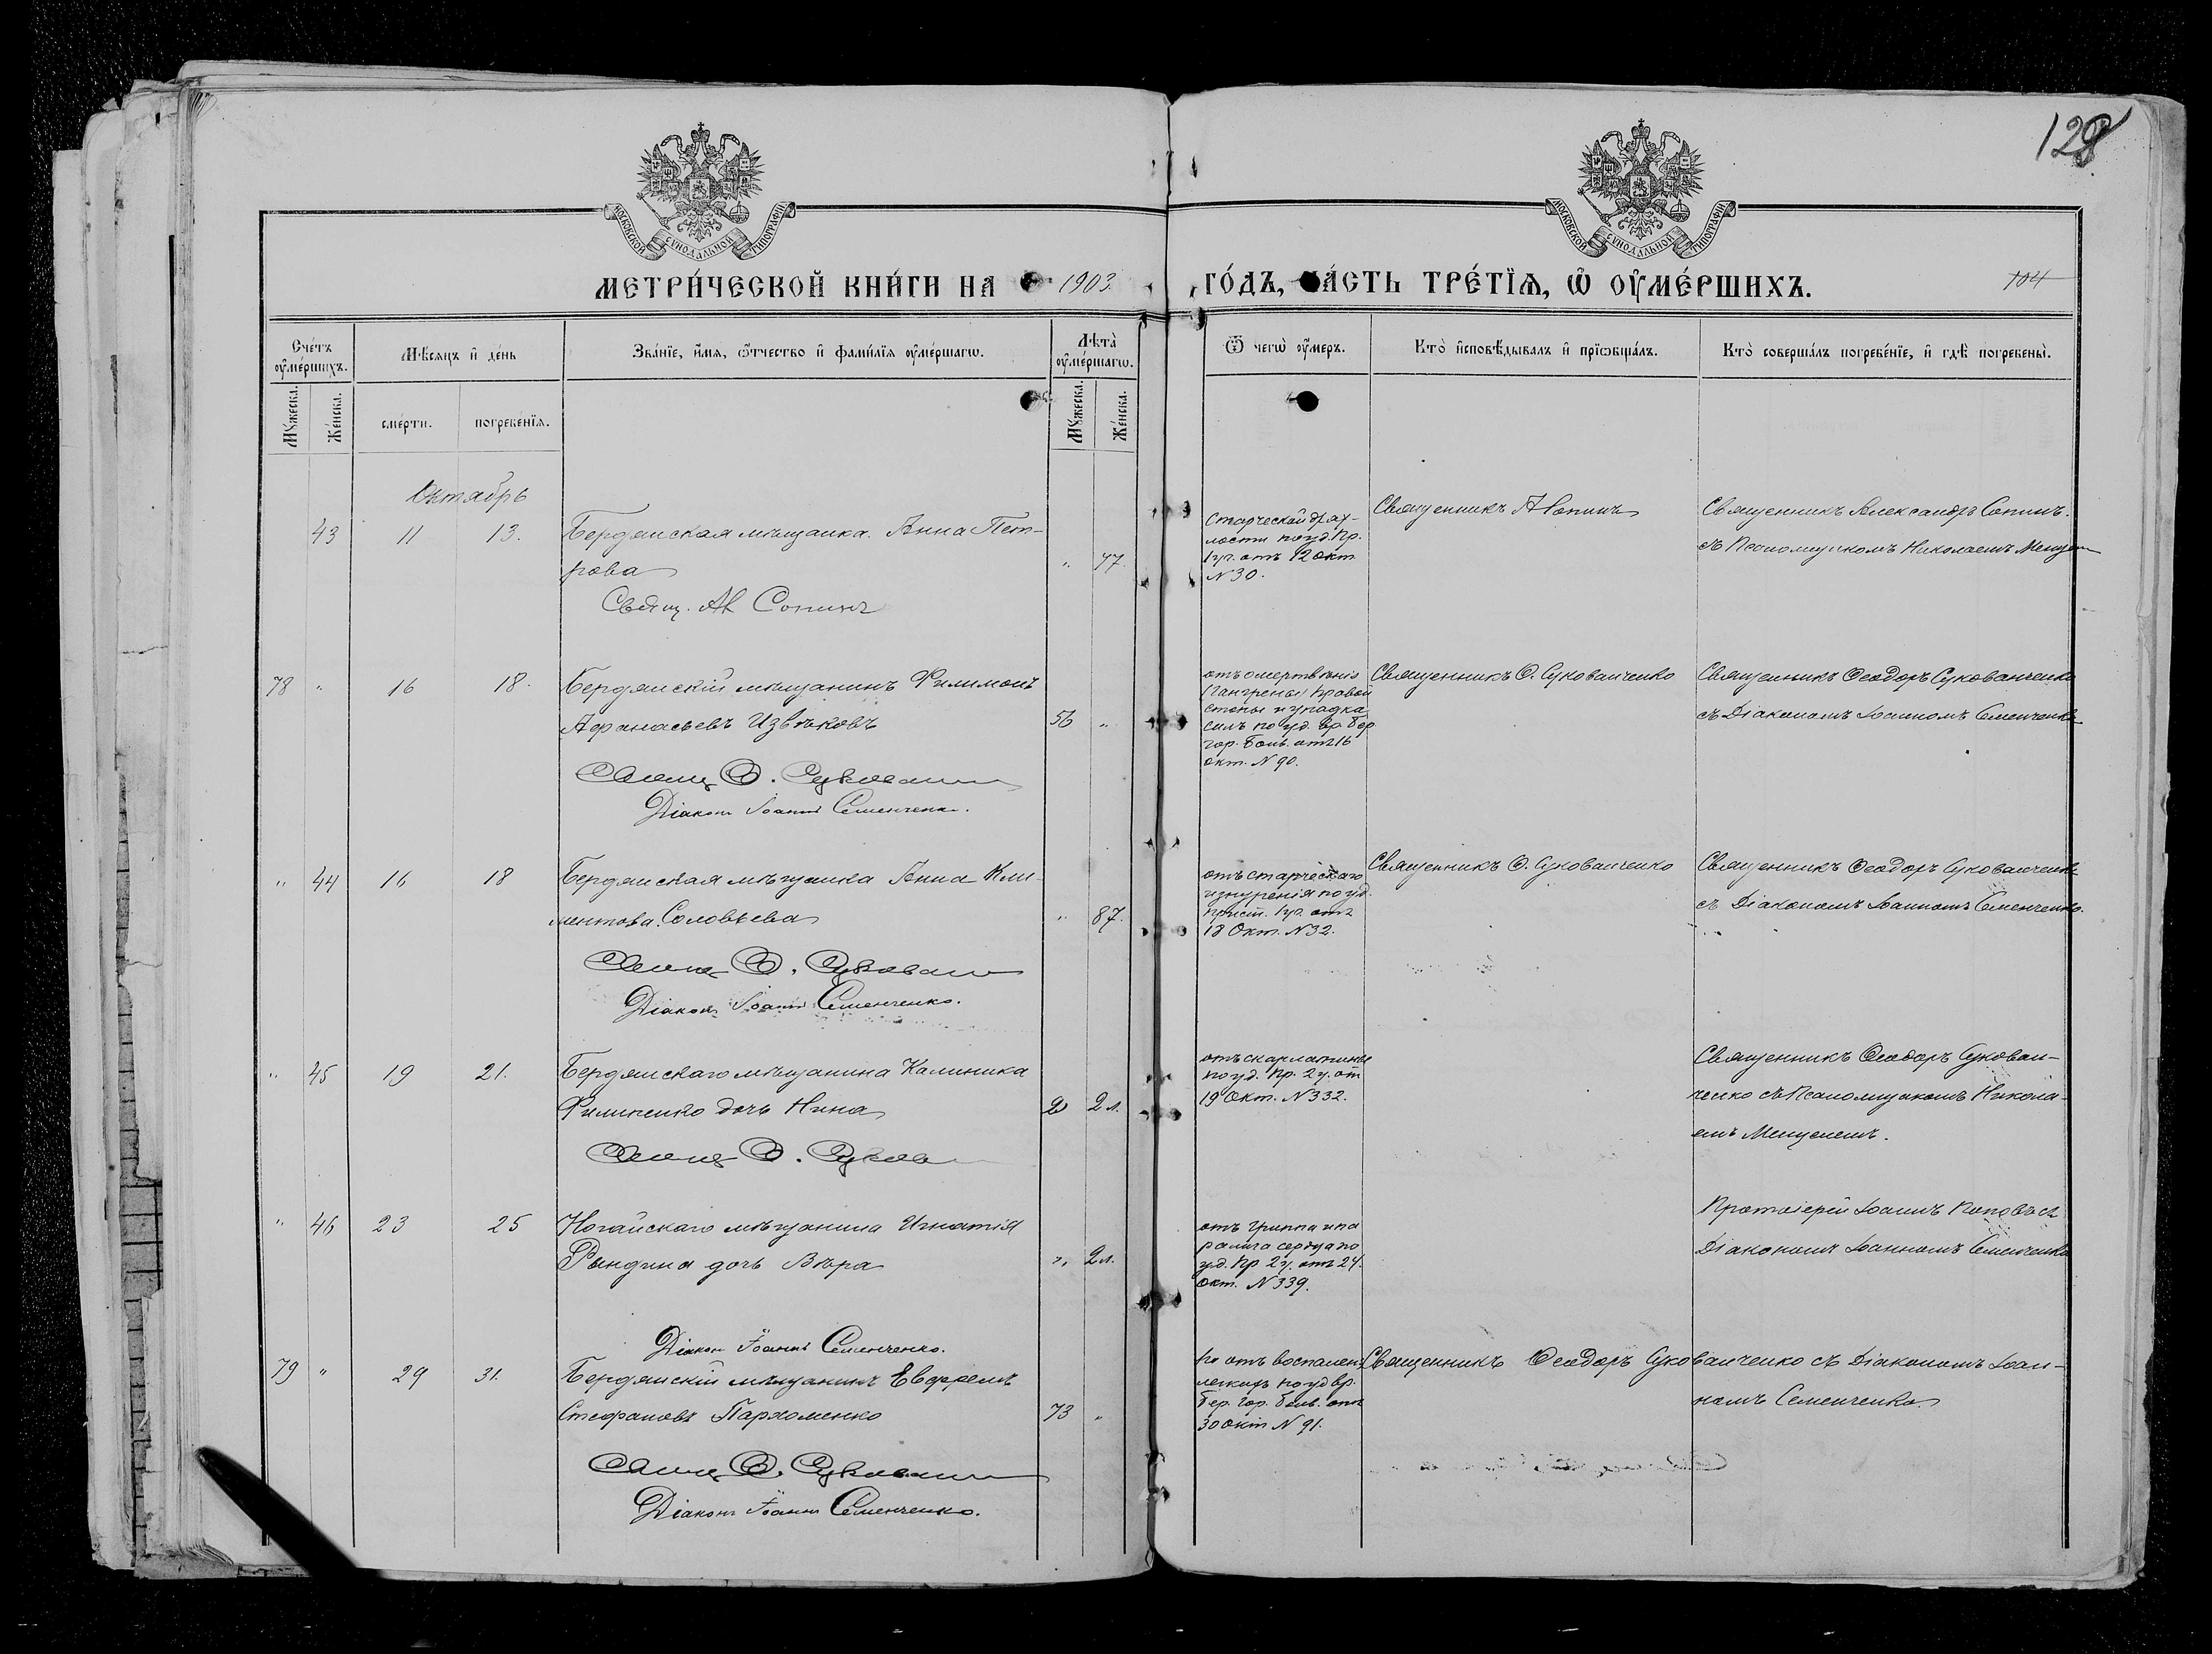 128
МОСКОВСКОЙ СѴНОДАЛЬНОЙ ТИПОГРАФІИ
МОСКОВСКОЙ СѴНОДАЛЬНОЙ ТИПОГРАФІИ
МЕТРИ́ЧЕСКОЙ КНИ́ГИ НА 1903
ГО́ДЪ, ЧА́СТЬ ТРЕ́ТЇѦ, Ѡ҆ ОУ҆МЕ́РШИХЪ.
104
Сче́тъ оу҆ме́ршихъ.
Мѣ́сяцъ и҆ де́нь
Зва́нїе, и҆́мя, ѻ҆́тчество и҆ фами́лїя оу҆ме́ршагѡ.
Лѣ̀та оу҆ме́ршагѡ.
Ѿ чегѡ̀ оу҆́меръ.
Кто̀ и҆сповѣ́дывалъ и҆ прїѡбща́лъ.
Кто̀ соверша́лъ погребе́нїе, и҆ гдѣ̀ погребены̀.
Мꙋ́жеска.
Же́нска.
сме́рти.
погребе́нїя.
Мꙋ́жеска.
Же́нска.
Октябрь
43 11 13. Бердянская мѣщанка Анна Пет-
рова " 77.
Свящ. Ал Сопинъ
Старческой дрях-
лости по уд. Пр.
1 уч. отъ 12 окт
N 30.
Священникъ А Сопинъ
Священникъ Александръ Сопинъ.
съ Псаломщикомъ Николаемъ
78 " 16 18. Бердянскій мѣщанинъ Филимонъ
Афанасьевъ Извѣковъ 56 "
Свящ Ѳ. Сукован
Діаконъ Іоаннъ Семенченко.
отъ омертвѣнія
(Гангрены) правой
стопы и упадка
силъ по уд. вр. Бер
гор. Больн. отъ 16
окт. N 90.
Священникъ Ѳ. Сукованченко
Священникъ Ѳеодоръ Сукованченко
съ Діакономъ Іоанномъ Семенченко
" 44 16 18 Бердянская мѣщанка Анна Кли-
ментова Соловьева " 87.
Свящ Ѳ. Сукован
Діаконъ Іоаннъ Семенченко.
отъ старческаго
изнуренія по уд.
Прист. 1 уч. отъ
18 Окт. N 32.
Священникъ Ѳ. Сукованченко
Священникъ Ѳеодоръ Сукованченко
съ Діакономъ Іоанномъ Семенченко.
" 45 19 21. Бердянскаго мѣщанина Калиника
Филипенко дочь Нина 2 л.
Свящ Ѳ. Суков
отъ скарлатины
по уд. Пр. 2 у. от
19 Окт. N 332.
Священникъ Ѳеодоръ Сукован-
ченко съ Псаломщикомъ Никола-
емъ
" 46 23 25 Ногайскаго мѣщанина Игнатія
Рындина дочь Вѣра " 2 л.
Діаконъ Іоаннъ Семенченко.
отъ гриппа и па
ралича сердца по
уд. Пр 2 у. отъ 24.
окт. N 339.
Протоіерей Іоаннъ Поповъ съ
Діакономъ Іоанномъ Семенченко
79 " 29 31. Бердянскій мѣщанинъ Евфремъ
Стефановъ Пархоменко 73 "
Свящ Ѳ. Сукован
Діаконъ Іоаннъ Семенченко.
отъ воспален.
легкихъ по уд вр.
Бер. гор. Больн. отъ
30 окт N 91.
Священникъ Ѳеодоръ Сукованченко съ Діакономъ Іоан-
номъ Семенченко